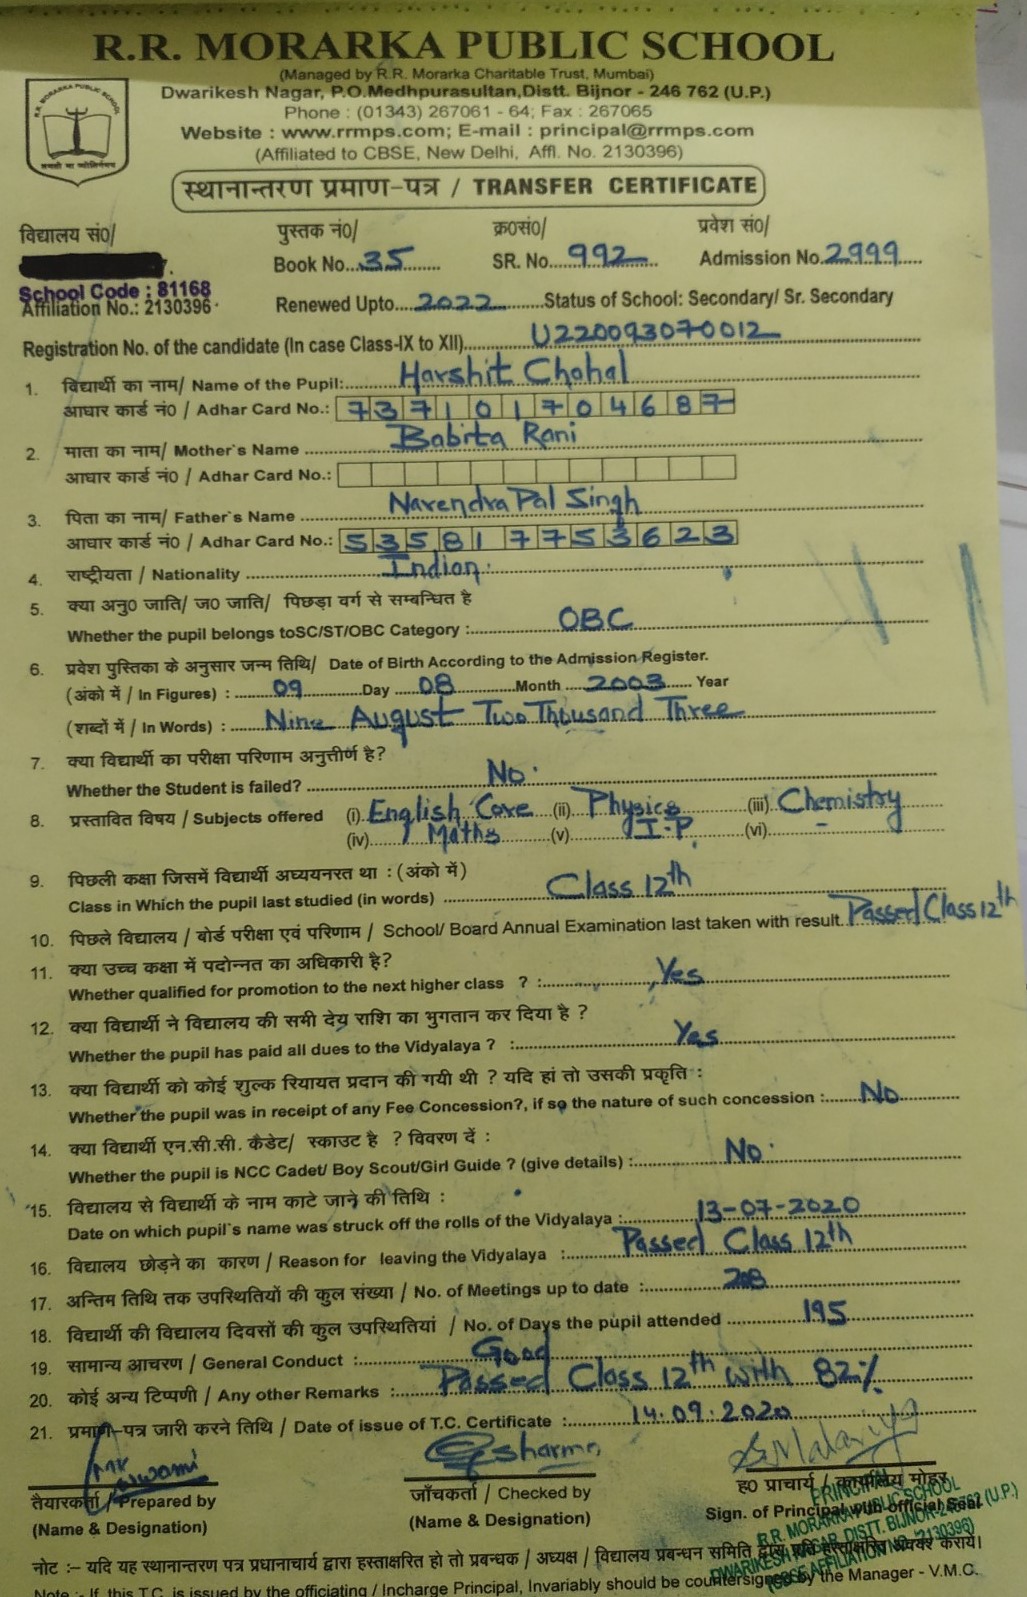 R.R. MORARKA PUBLIC SCHOOL
(Managed by R.R. Morarka Charitable Trust, Mumbai)
Dwarikesh Nagar, P.O.Medhpurasultan,Distt. Bijnor - 246 762 (U.P.)
Phone : (01343) 267061 - 64; Fax : 267065
Website : www.rrmps.com; E-mail : principal@rrmps.com
(Affiliated to CBSE, New Delhi, Affl. No. 2130396)
R.R. MORARKA PUBLIC SCHOOL
स्थानान्तरण प्रमाण-पत्र / TRANSFER CERTIFICATE
विद्यालय सं0/ पुस्तक नं0/ क्र0सं0/ प्रवेश सं0/
Book No...35........ SR. No...992...... Admission No.2999....
School Code : 81168
Affiliation No.: 2130396 Renewed Upto....2022......Status of School: Secondary/ Sr. Secondary
Registration No. of the candidate (In case Class-IX to XII)..........U220093070012
1. विद्यार्थी का नाम/ Name of the Pupil:.........Harshit Chahal
आधार कार्ड नं0 / Adhar Card No.: 737101704687
2. माता का नाम/ Mother's Name ............Babita Rani
आधार कार्ड नं0 / Adhar Card No.:
3. पिता का नाम/ Father's Name ............Narendra Pal Singh
आधार कार्ड नं0 / Adhar Card No.: 535817753623
4. राष्ट्रीयता / Nationality ............Indian.
5. क्या अनु0 जाति/ ज0 जाति/ पिछड़ा वर्ग से सम्बन्धित है
Whether the pupil belongs toSC/ST/OBC Category :..........OBC
6. प्रवेश पुस्तिका के अनुसार जन्म तिथि/ Date of Birth According to the Admission Register.
(अंको में / In Figures) : ......09..........Day ....08..........Month ....2003..... Year
(शब्दों में / In Words) : ......Nine August Two Thousand Three
7. क्या विद्यार्थी का परीक्षा परिणाम अनुत्तीर्ण है?
Whether the Student is failed? ..............No.
8. प्रस्तावित विषय / Subjects offered (i) English Core (ii) Physics (iii) Chemistry
(iv) Maths (v) I.P. (vi)
9. पिछली कक्षा जिसमें विद्यार्थी अध्ययनरत था : (अंको में)
Class in Which the pupil last studied (in words) ..........Class 12th
10. पिछले विद्यालय / बोर्ड परीक्षा एवं परिणाम / School/ Board Annual Examination last taken with result. Passed Class 12th
11. क्या उच्च कक्षा में पदोन्नत का अधिकारी है?
Whether qualified for promotion to the next higher class ? :..........Yes
12. क्या विद्यार्थी ने विद्यालय की सभी देय राशि का भुगतान कर दिया है ?
Whether the pupil has paid all dues to the Vidyalaya ? :..........Yes
13. क्या विद्यार्थी को कोई शुल्क रियायत प्रदान की गयी थी ? यदि हां तो उसकी प्रकृति :
Whether the pupil was in receipt of any Fee Concession?, if so the nature of such concession :......No
14. क्या विद्यार्थी एन.सी.सी. कैडेट/ स्काउट है ? विवरण दें :
Whether the pupil is NCC Cadet/ Boy Scout/Girl Guide ? (give details) :..........No.
15. विद्यालय से विद्यार्थी के नाम काटे जाने की तिथि :
Date on which pupil's name was struck off the rolls of the Vidyalaya :..........13-07-2020
16. विद्यालय छोड़ने का कारण / Reason for leaving the Vidyalaya :..........Passed Class 12th
17. अन्तिम तिथि तक उपस्थितियों की कुल संख्या / No. of Meetings up to date :..........208
18. विद्यार्थी की विद्यालय दिवसों की कुल उपस्थितियां / No. of Days the pupil attended ..........195
19. सामान्य आचरण / General Conduct :..........Good
20. कोई अन्य टिप्पणी / Any other Remarks :......Passed Class 12th with 82%
21. प्रमाण-पत्र जारी करने तिथि / Date of issue of T.C. Certificate :..........14.09.2020
तैयारकर्ता / Prepared by जाँचकर्ता / Checked by ह0 प्राचार्य / कार्यालय मोहर
(Name & Designation) (Name & Designation) Sign. of Principal with official Seal
PRINCIPAL
R.R. MORARKA PUBLIC SCHOOL
DWARIKESH NAGAR, DISTT. BIJNOR-246762 (U.P.)
(CBSE AFFILIATION NO. 2130396)
नोट :- यदि यह स्थानान्तरण पत्र प्रधानाचार्य द्वारा हस्ताक्षरित हो तो प्रबन्धक / अध्यक्ष / विद्यालय प्रबन्धन समिति द्वारा प्रति हस्ताक्षरित अवश्य करायें।
Note :- If this T.C. is issued by the officiating / Incharge Principal, Invariably should be countersigned by the Manager - V.M.C.